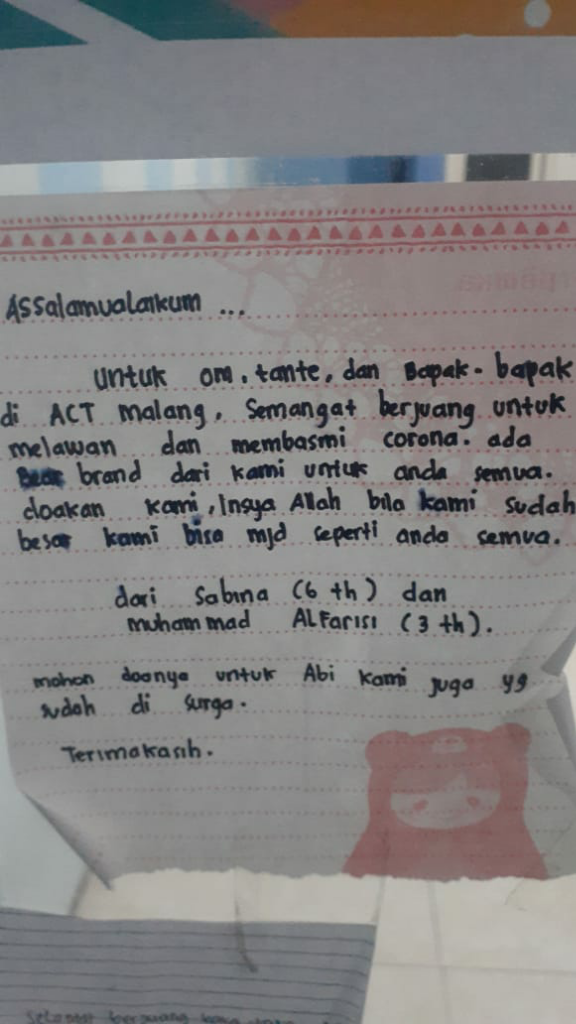 Assalamualaikum ...
untuk om, tante, dan Bapak-bapak
di ACT malang, Semangat berjuang untuk
melawan dan membasmi corona. ada
Bear brand dari kami untuk anda semua.
doakan kami, Insya Allah bila kami sudah
besar kami bisa mjd seperti anda semua.
dari Sabina (6 th) dan
muhammad ALFarisi (3 th).
mohon doanya untuk Abi kami juga yg
sudah di surga.
Terimakasih.
berjuang